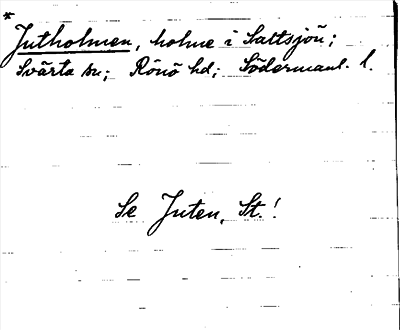 * Jutholmen, holme i Saltsjön;
Svärta sn; Rönö hd; Södermanl. l.
Se Juten, St.!